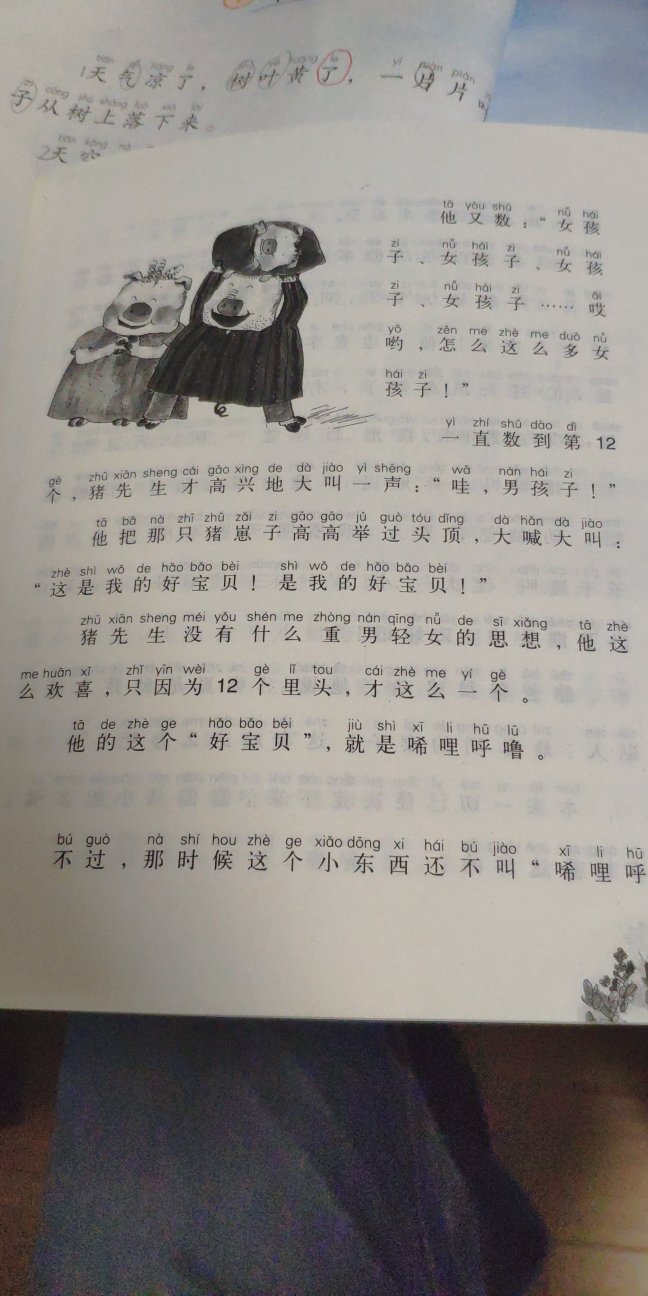 1天气凉了，树叶黄了，一片片叶
子从树上落下来。
2天空
tā yòu shǔ nǚ hái
他又数：“女孩
zi nǚ hái zi nǚ hái
子、女孩子、女孩
zi nǚ hái zi āi
子、女孩子……哎
yō zěn me zhè me duō nǚ
哟，怎么这么多女
hái zi
孩子！”
yì zhí shǔ dào dì
一直数到第12
gè zhū xiān sheng cái gāo xìng de dà jiào yì shēng wā nán hái zi
个，猪先生才高兴地大叫一声：“哇，男孩子！”
tā bǎ nà zhī zhū zǎi zi gāo gāo jǔ guò tóu dǐng dà hǎn dà jiào
他把那只猪崽子高高举过头顶，大喊大叫：
zhè shì wǒ de hǎo bǎo bèi shì wǒ de hǎo bǎo bèi
“这是我的好宝贝！是我的好宝贝！”
zhū xiān sheng méi yǒu shén me zhòng nán qīng nǚ de sī xiǎng tā zhè
猪先生没有什么重男轻女的思想，他这
me huān xǐ zhǐ yīn wèi gè lǐ tou cái zhè me yí gè
么欢喜，只因为12个里头，才这么一个。
tā de zhè ge hǎo bǎo bèi jiù shì xī li hū lū
他的这个“好宝贝”，就是唏哩呼噜。
bú guò nà shí hou zhè ge xiǎo dōng xi hái bú jiào xī li hū
不过，那时候这个小东西还不叫“唏哩呼